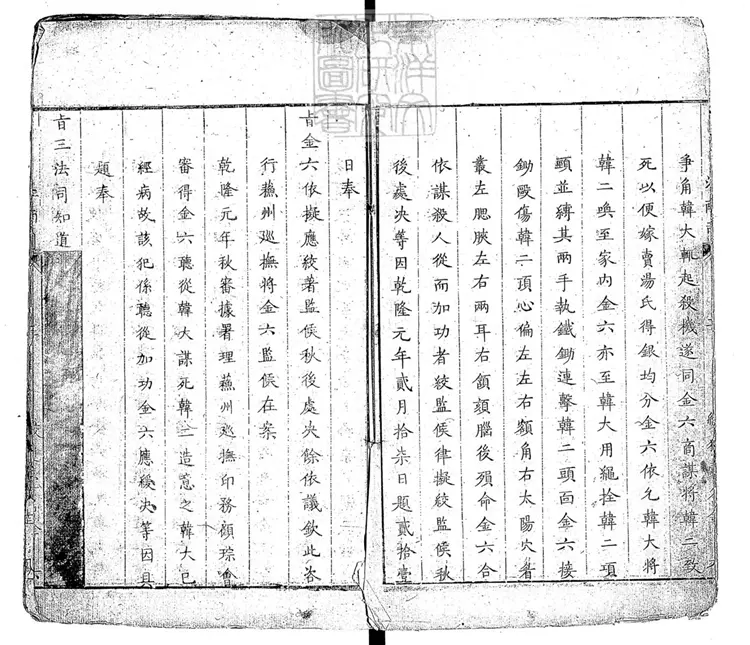 爭角韓大輒起殺機遂同金六商謀將韓二致
死以便嫁賣湯氏得銀均分金六依允韓大將
韓二喚至家內金六亦至韓大用繩拴韓二項
頸並縛其兩手執鐵鋤連擊韓二頭面金六接
鋤毆傷韓二頂心偏左左右額角右太陽穴眷
叢左腮脥左右兩耳右頷頦腦後殞命金六合
依謀殺人從而加功者絞監候律擬絞監候秋
後處决等因乾隆元年貳月拾柒日題貳拾壹
日奉
旨金六依擬應絞著監候秋後處决餘依議欽此咨
行蘇州巡撫將金六監候在案
乾隆元年秋審據署理蘇州巡撫印務顧琮會
審得金六聽從韓大謀死韓二造意之韓大已
經病故該犯係聽從加功金六應緩决等因具
題奉
旨三法司知道